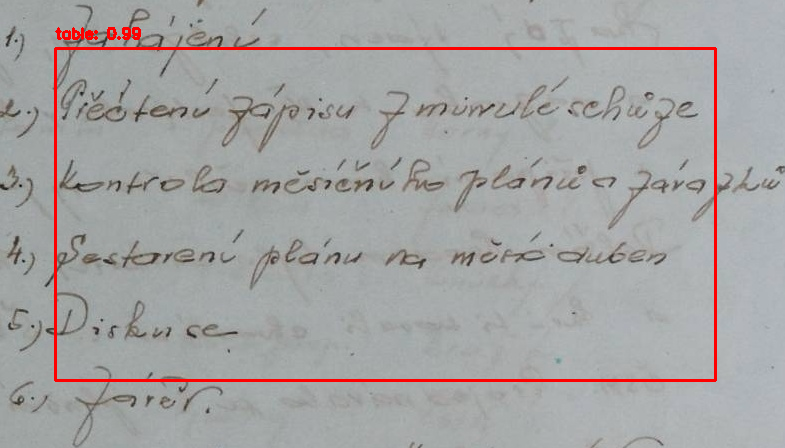 table: 0.99
1.) Zahájení
2.) Přečtení zápisu z minulé schůze
3.) Kontrola měsíčního plánů a závazků
4.) Sestavení plánu na měsíc duben
5.) Diskuse
6.) Závěr.